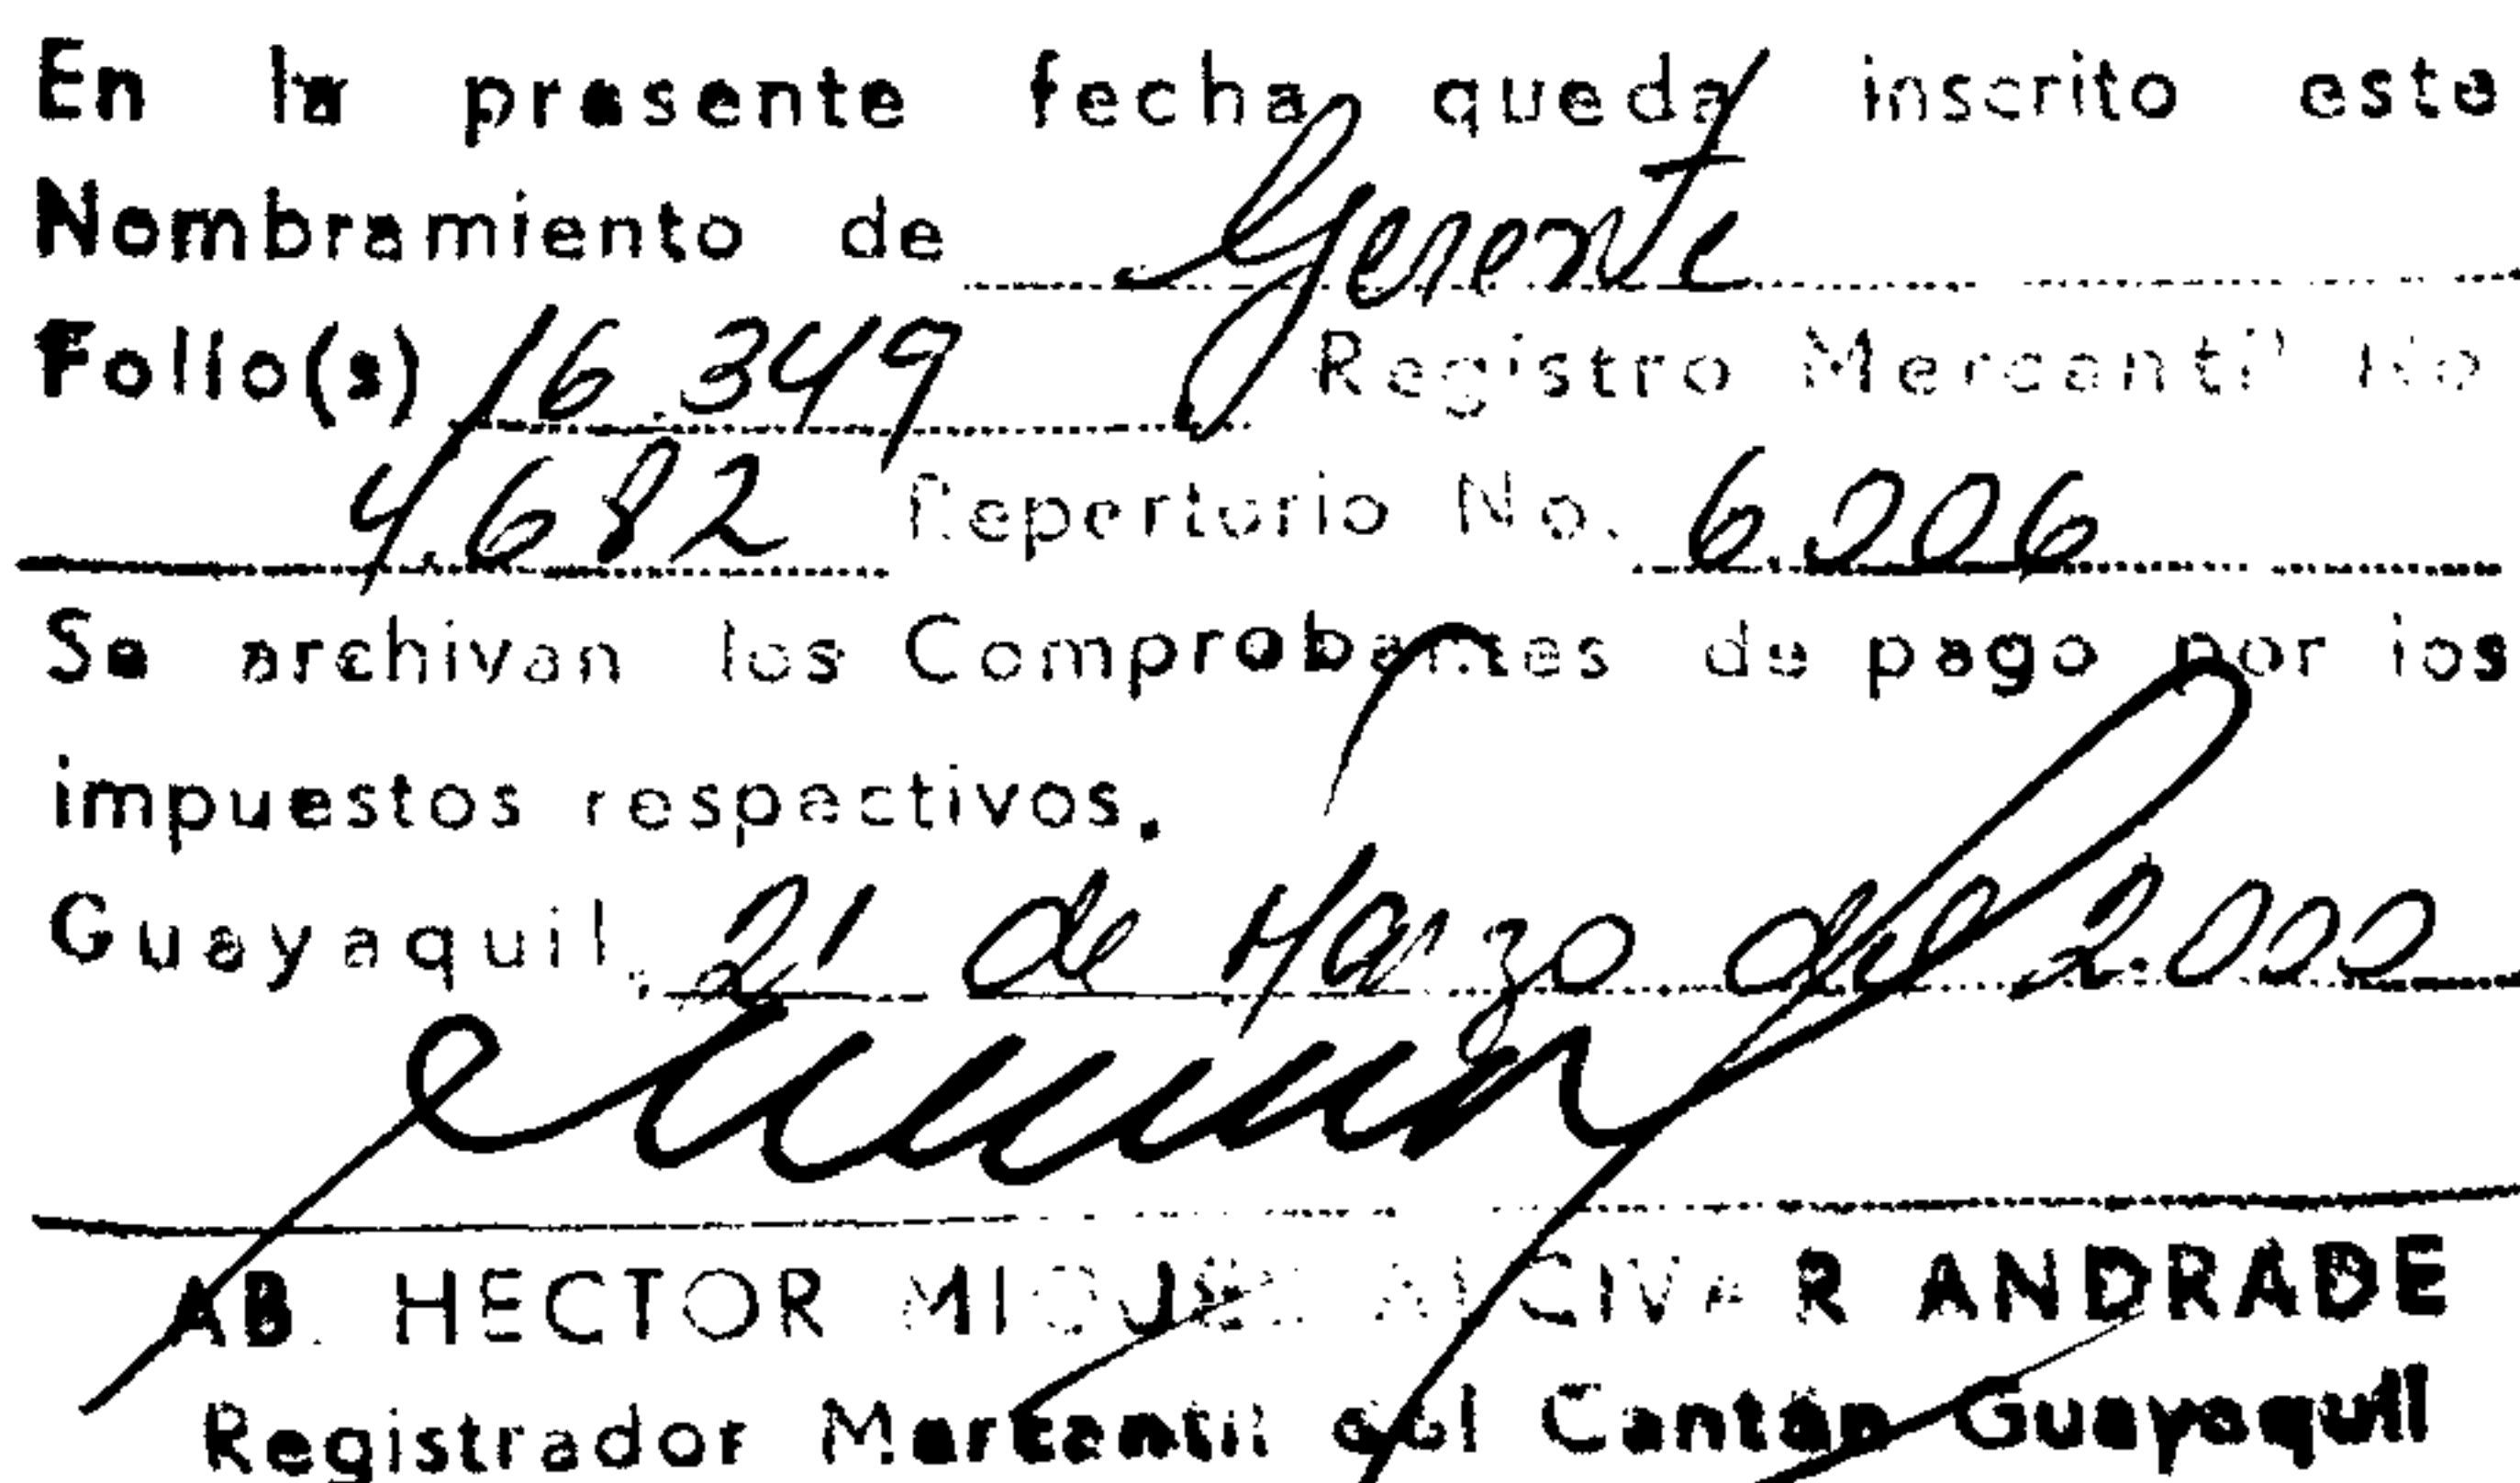 En la presente fecha queda inscrito este
Nombramiento de Gerente
Folio(s) 16.349 Registro Mercantil No
4.682 Repertorio No. 6.206
Se archivan los Comprobantes de pago por los
impuestos respectivos.
Guayaquil, 21 de Marzo del 2.000
AB. HECTOR MIGUEL ALCIVAR ANDRADE
Registrador Mercantil del Cantón Guayaquil